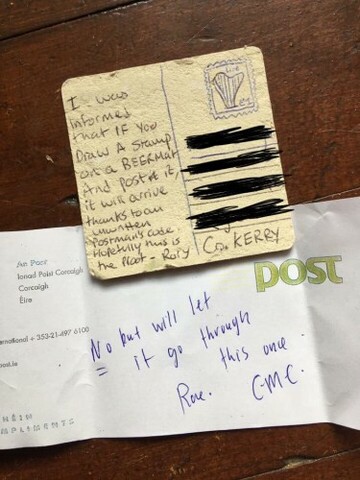 I was
informed
that IF you
Draw A Stamp
on a BEERMAT
And post it
it will arrive
thanks to an
unwritten
Postman's code.
Hopefully this is
the Proof - Rory
Co. KERRY
An Post
Ionad Poist Corcaigh
Corcaigh
Éire
nternational + 353-21-497 6100
post.ie
post
No but will let
it go through
this once.
C.M.C.
NHÉIM
MPLIMENTS